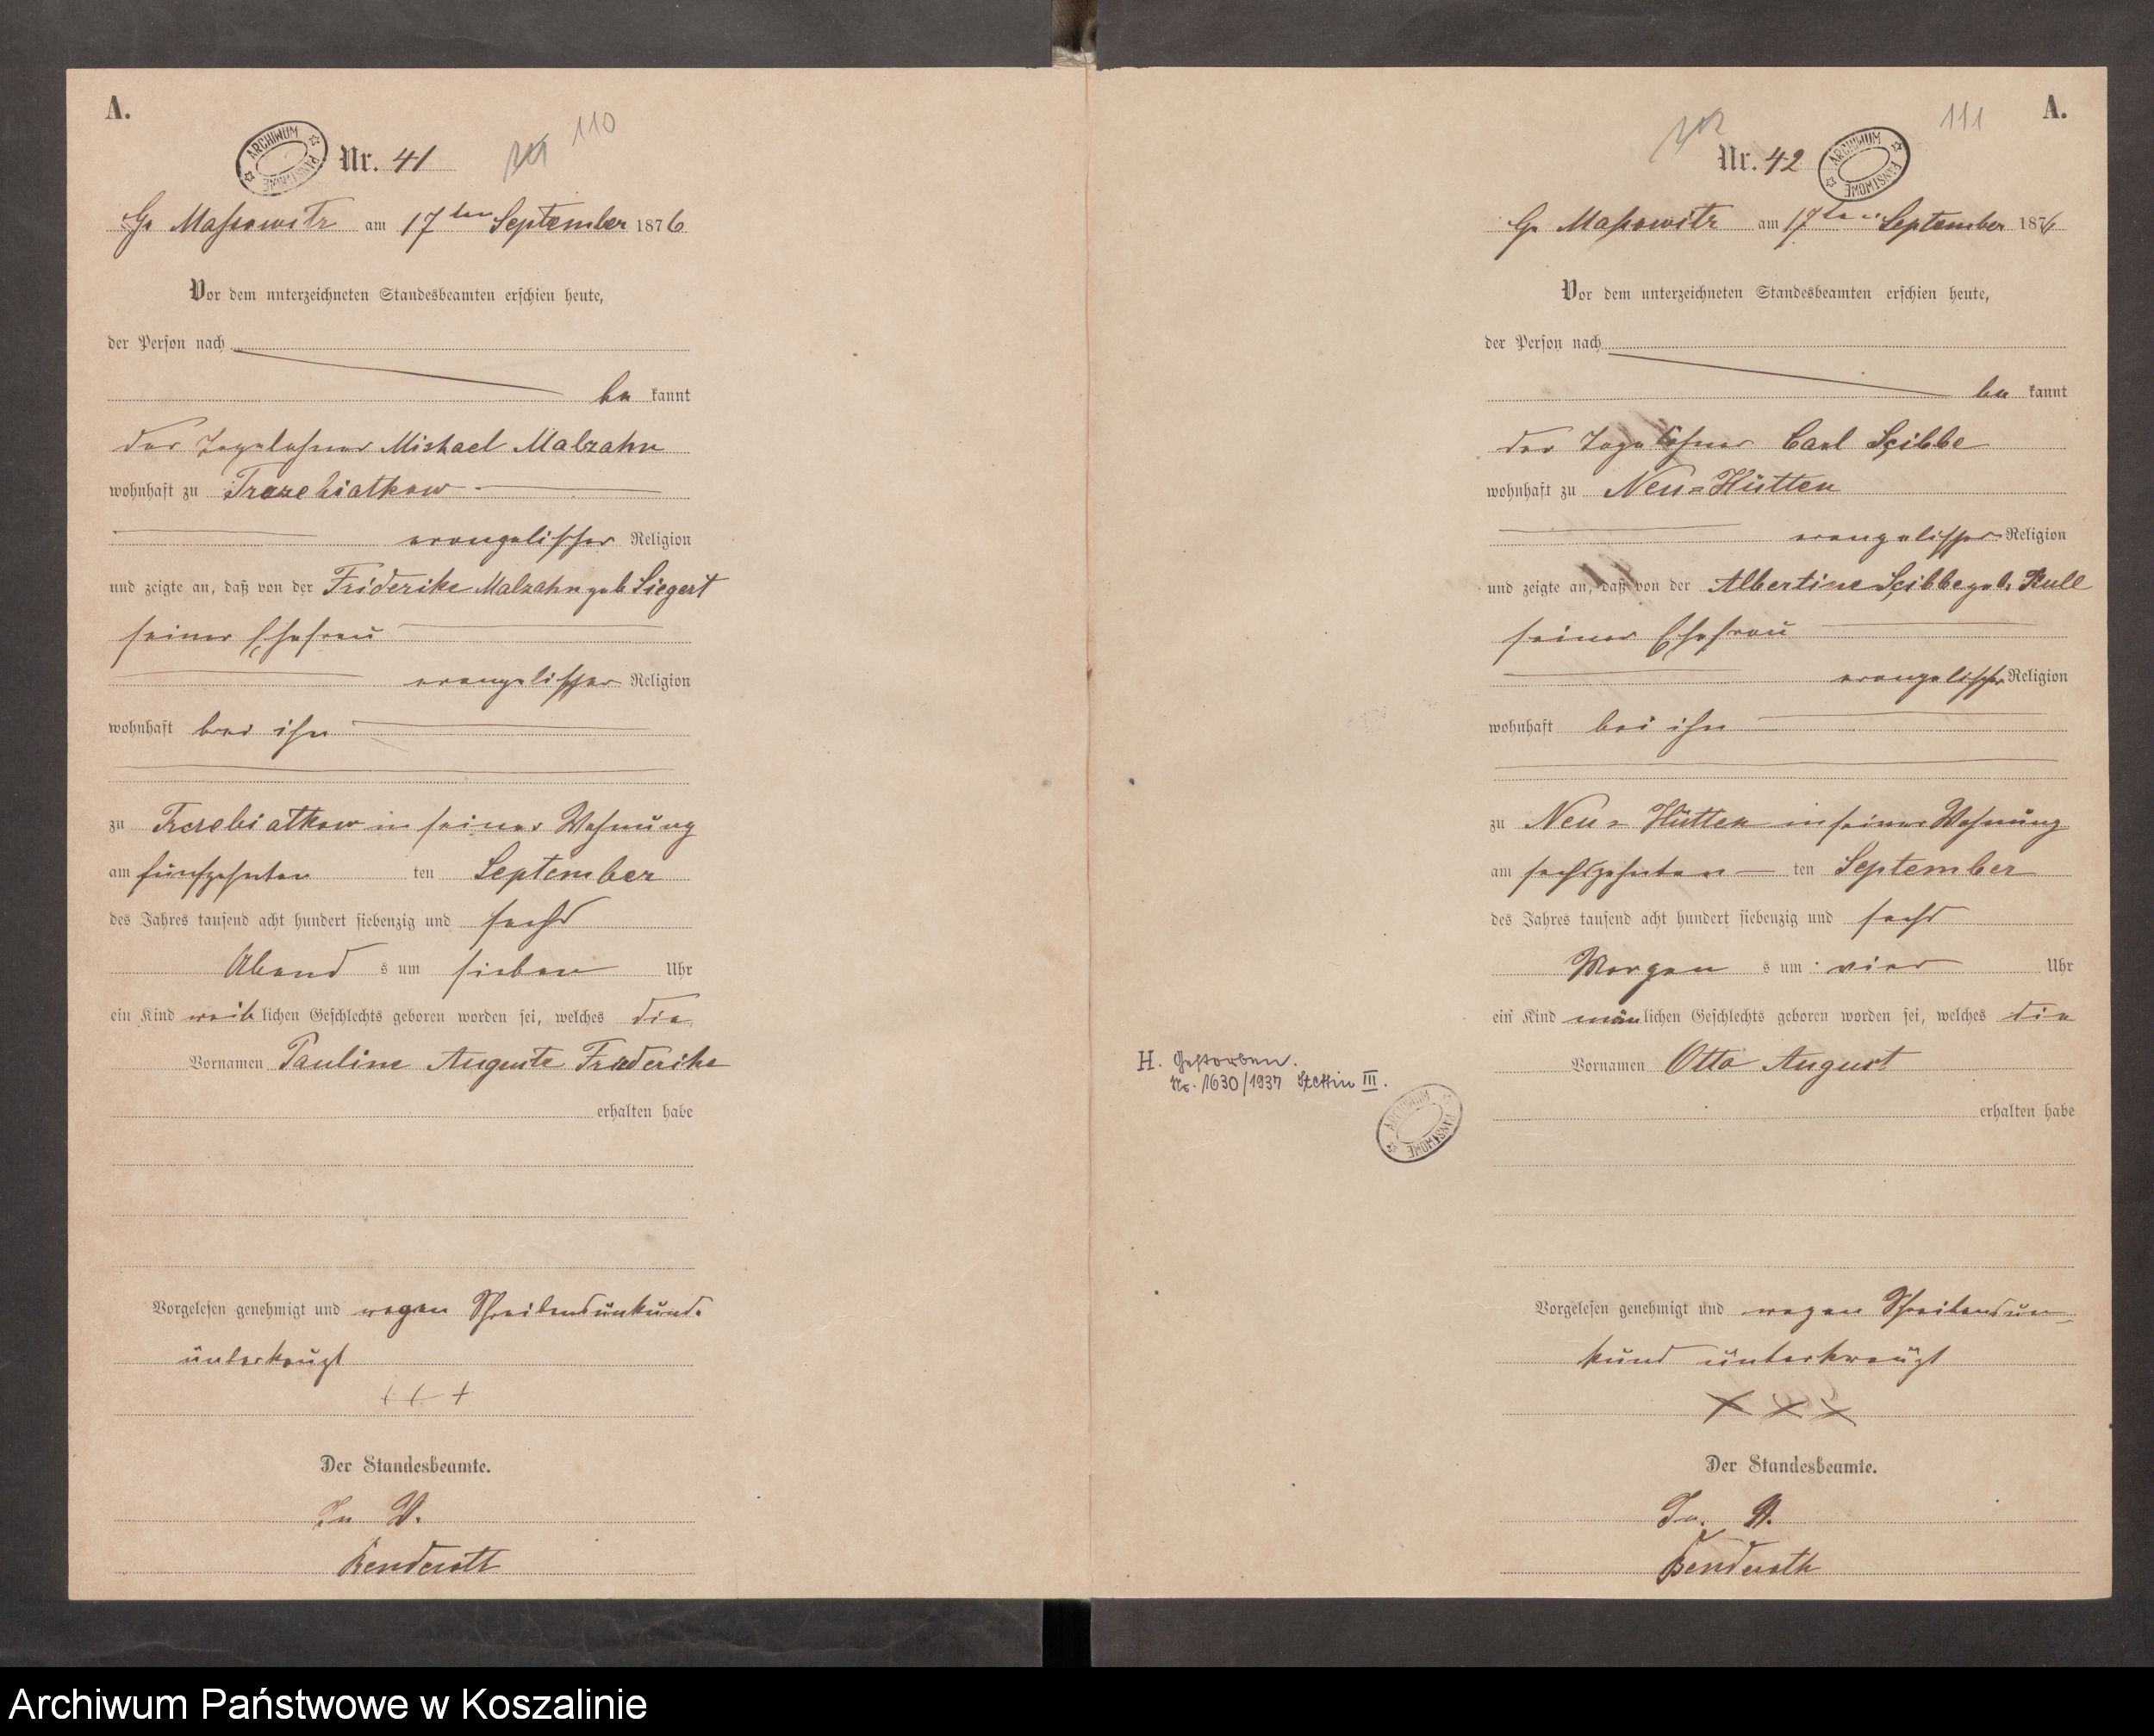 A.
110
ARCHIWUM PAŃSTWOWE
Nr. 41
Gr Massowitz am 17ten September 1876
Vor dem unterzeichneten Standesbeamten erschien heute,
der Person nach
be kannt
der Tagelohner Michael Malzahn
wohnhaft zu Trzebiatkow
evangelischer Religion
und zeigte an, daß von der Friderike Malzahn geb Siegert
seiner Ehefrau
evangelischer Religion
wohnhaft bei ihn
zu Trzebiatkow in seiner Wohnung
am fünfzehnten ten September
des Jahres tausend acht hundert siebenzig und sechs
Abend s um sieben Uhr
ein Kind weib lichen Geschlechts geboren worden sei, welches die
Vornamen Pauline Auguste Friederike
erhalten habe
Vorgelesen genehmigt und wegen Schreibensunkund.
unterkreuzt
+ + +
Der Standesbeamte.
In V.
Benderoth
111
A.
Nr. 42
ARCHIWUM PAŃSTWOWE
Gr Massowitz am 17ten September 1876
Vor dem unterzeichneten Standesbeamten erschien heute,
der Person nach
be kannt
der Tagelöhner Carl Scibbe
wohnhaft zu Neu=Hütten
evangelischer Religion
und zeigte an, daß von der Albertine Scibbe geb. Kull
seiner Ehefrau
evangelischer Religion
wohnhaft bei ihn
zu Neu=Hütten in seiner Wohnung
am sechszehnten ten September
des Jahres tausend acht hundert siebenzig und sechs
Morgen s um vier Uhr
ein Kind män lichen Geschlechts geboren worden sei, welches die
Vornamen Otto August
erhalten habe
H. Gestorben.
Nr. 1630/1937 Stettin III.
ARCHIWUM PAŃSTWOWE
Vorgelesen genehmigt und wegen Schreibensun=
kund unterkreuzt
X X X
Der Standesbeamte.
In. V.
Benderoth
Archiwum Państwowe w Koszalinie